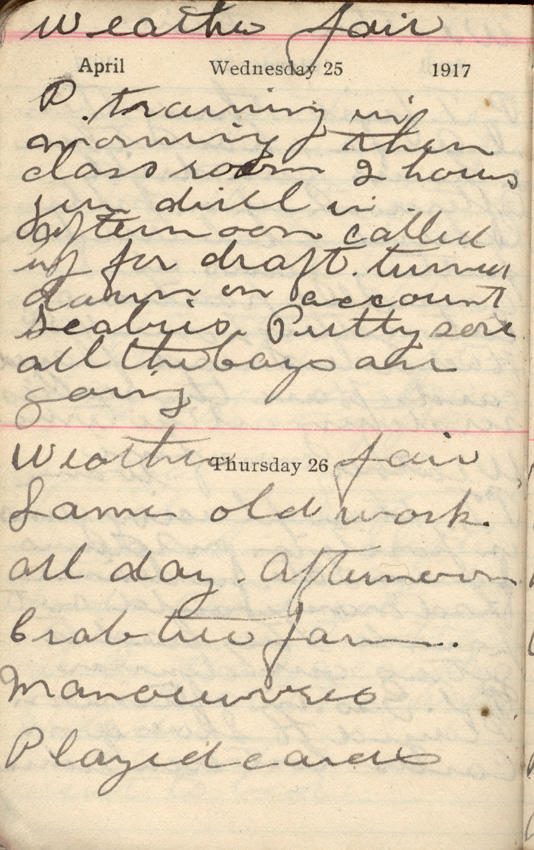 Weather fair
April Wednesday 25 1917
P. training in
morning then
class room 2 hours
gun drill in
afternoon called
up for draft. turned
down on account
Scabies. Pretty sore
all the boys are
going
Weather Thursday 26 fair
Same old work.
all day. Afternoon
Crabtree farm.
Manoeuvres
Played cards